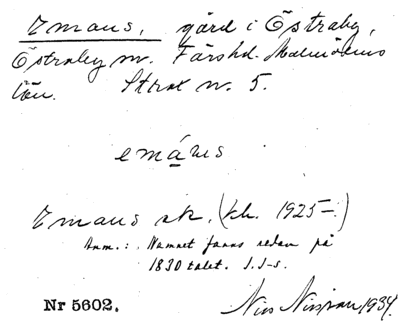 Emaus, gård i Östraby,
Östraby sn. Färs hd. Malmöhus
län. Strax n. 5.
emáus
Emaus sk. (kh. 1925–.)
Anm.: Namnet fanns redan på
1830 talet. I.I-s.
Nr 5602.
Nils Nilsson 1934.